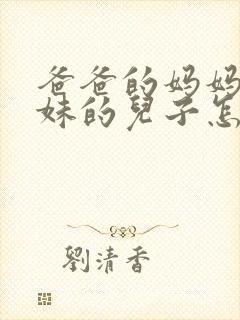 爸爸的妈妈
妹的兒子怎
劉清香